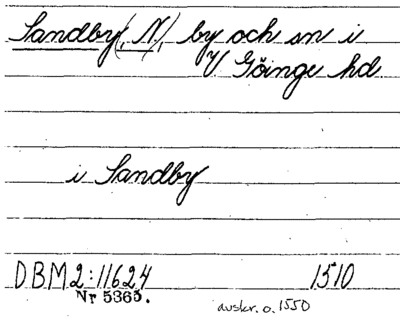 Sandby(, N), by och sn i
V Göinge hd
i Sandby
DBM 2:11624 1510
Nr 5365. avskr. o. 1550